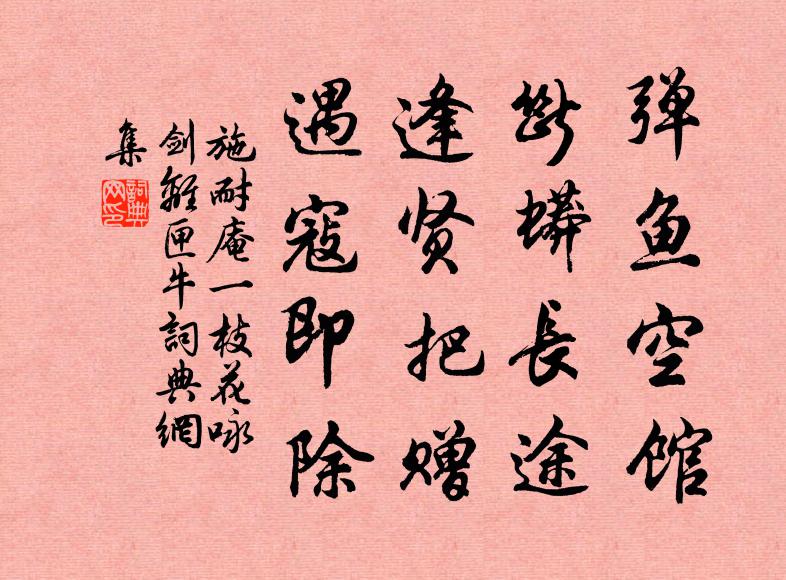 弹鱼空馆
断蟒長途
逢贤把赠
遇寇即除
施耐庵一枝花咏
劍離匣牛詞典網
集
詞典
网印